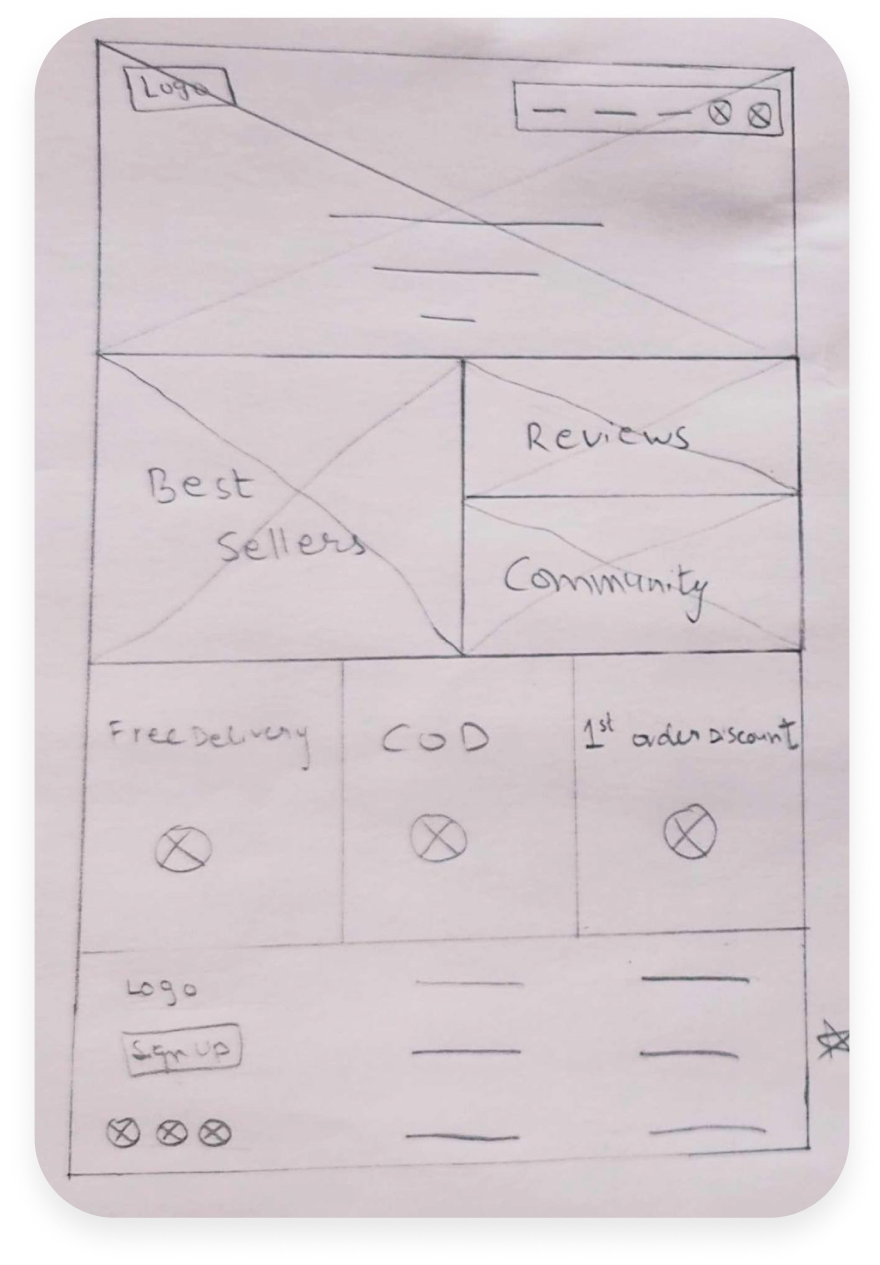 Logo
Reviews
Best
Sellers
Community
Free Delivery
COD
1st order Discount
Logo
Sign UP